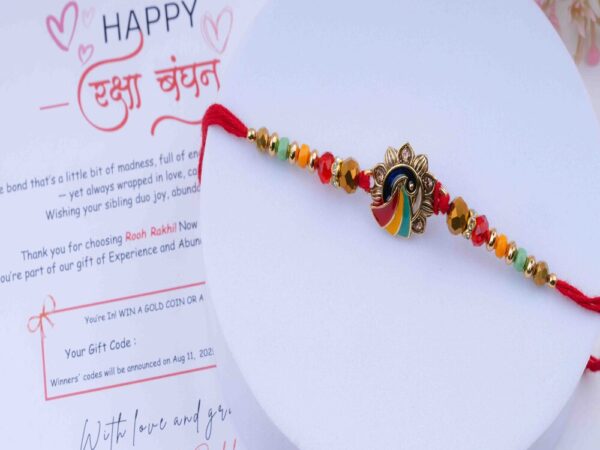 HAPPY
रक्षा बंधन
bond that's a little bit of madness, full of
— yet always wrapped in love,
Wishing your sibling duo joy,
Thank you for choosing Rooh Rakhi! Now
you're part of our gift of Experience and
You're In! WIN A GOLD COIN OR A
Your Gift Code :
Winners' codes will be announced on Aug 11,
With love and